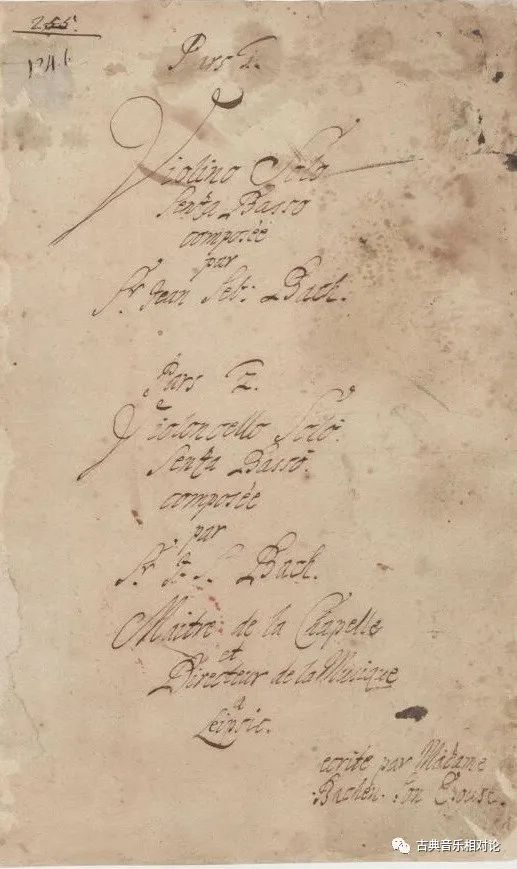 255.
1246
Pars 1.
Violino Solo
Senza Basso
composée
par
Sr. Jean Seb: Bach.
Pars 2.
Violoncello Solo.
Senza Basso.
composée
par
Sr. J. S. Bach.
Maitre de la Chapelle
et
Directeur de la Musique
a
Leipsic.
ecrite par Madame
Bachen. Son Epouse.
古典音乐相对论